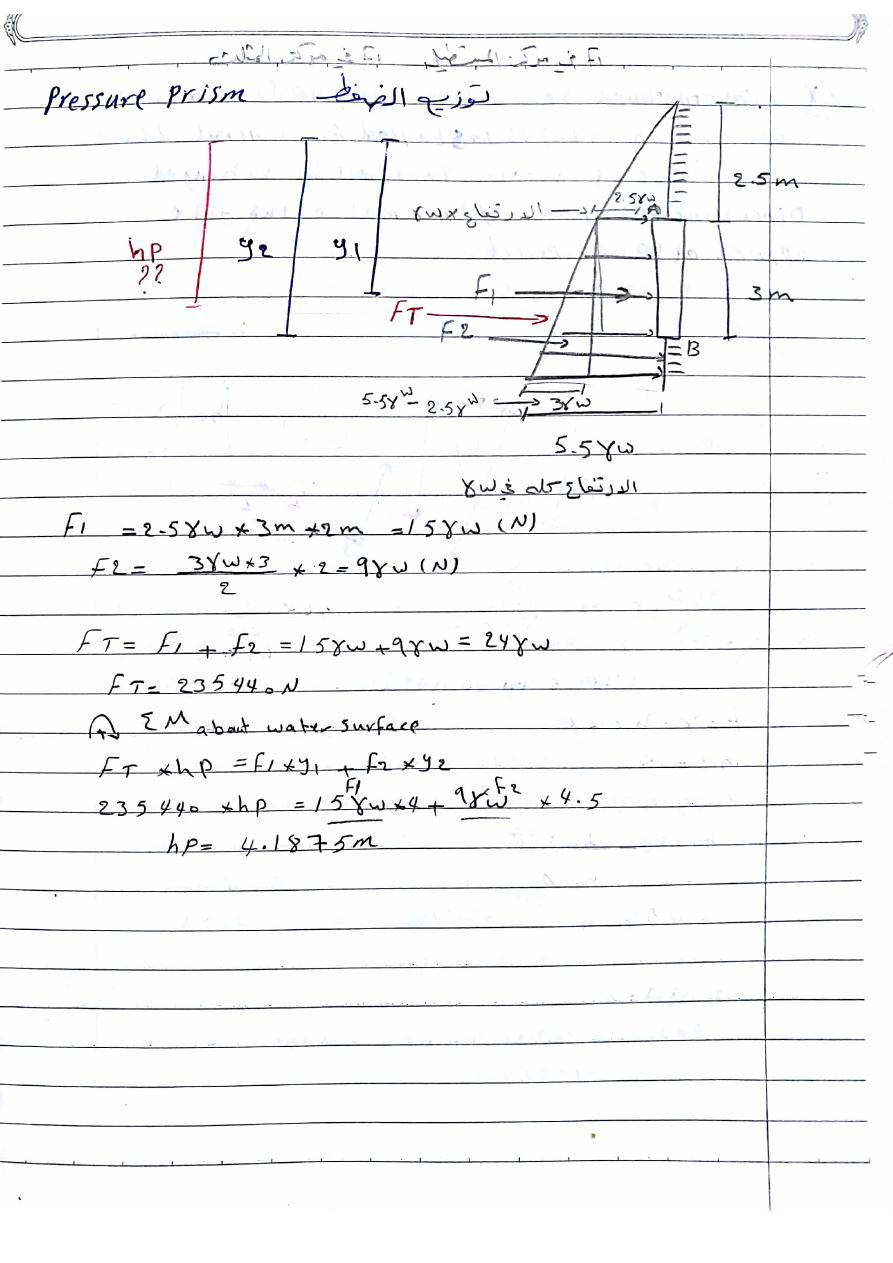 F1 في مركز المستطيل F2 في مركز المثلث
Pressure Prism توزيع الضغط
2.5 m
2.5γw
γw x الارتفاع
A
hp
??
y2
y1
F1
3m
FT
F2
B
5.5γw - 2.5γw
3γw
5.5γw
الارتفاع كله في γw
F1 = 2.5γw * 3m * 2m = 15γw (N)
F2 = 3γw*3/2 * 2 = 9γw (N)
FT = F1 + F2 = 15γw + 9γw = 24γw
FT = 235440 N
ΣM about water surface
FT * hp = F1 * y1 + F2 * y2
F1 F2
235440 * hp = 15γw * 4 + 9γw * 4.5
hp = 4.1875m